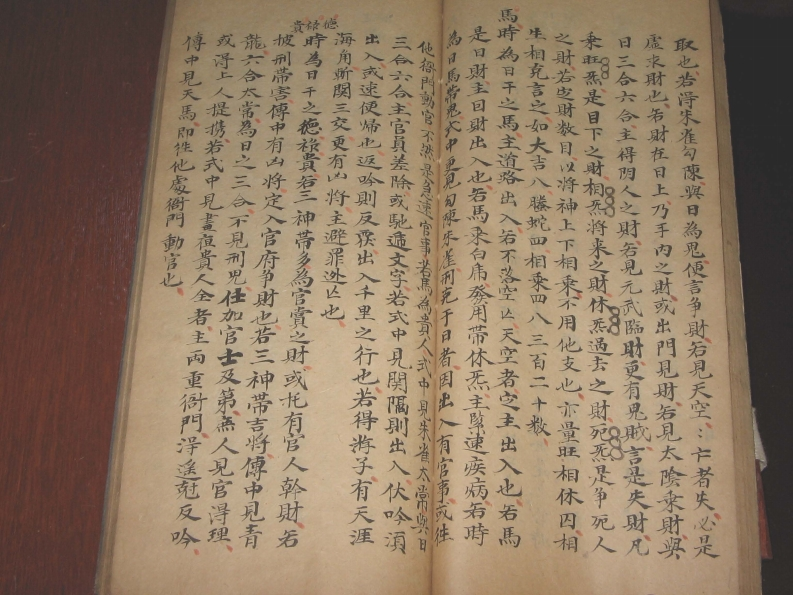 取也若得朱雀勾陳與日為鬼便言争財若見天空亡者失必是
虚求財也若財在日上乃手内之財或出門見財若見太陰乘財與
日三合六合主得阴人之財若見元武臨財更有鬼賊言是失財凡
乘旺炁是目下之財相炁将来之財休炁過去之財死炁是争死人
之財若定財数目以将神上下相乘不用他支也亦量旺相休囚相
生相克言之如大吉八螣蛇四相乘四八三百二十数
馬時為日干之馬主道路出入若不落空亡天空者定主出入也若馬
是日財主因財出入也若馬乘白虎發用帶休炁主障速疾病若時
為日馬帶鬼式中更見勾陳朱雀刑克于日者因出入有官事或往
他衙門動官不然是急速官事若馬為貴人式中見朱雀太常與日
三合六合主官員差除或馳遞文字若式中見関隔則出入伏吟須
出入或速便帰也返吟則反覆出入千里之行也若得海子有天涯
海角斬関三交更有凶将主避罪迯亡也
德祿貴
時為日干之德祿貴若三神帶多為官賞之財或托有官人幹財若
披刑帶害傳中有凶将定入官府争財也若三神帶吉将傳中見青
龍六合太常為日之三合不見刑咒仕加官士及第無人見官得理
或得上人提携若式中見晝夜貴人全者主两重衙門淂遥尅反吟
傳中見天馬即往他處衙門動官也